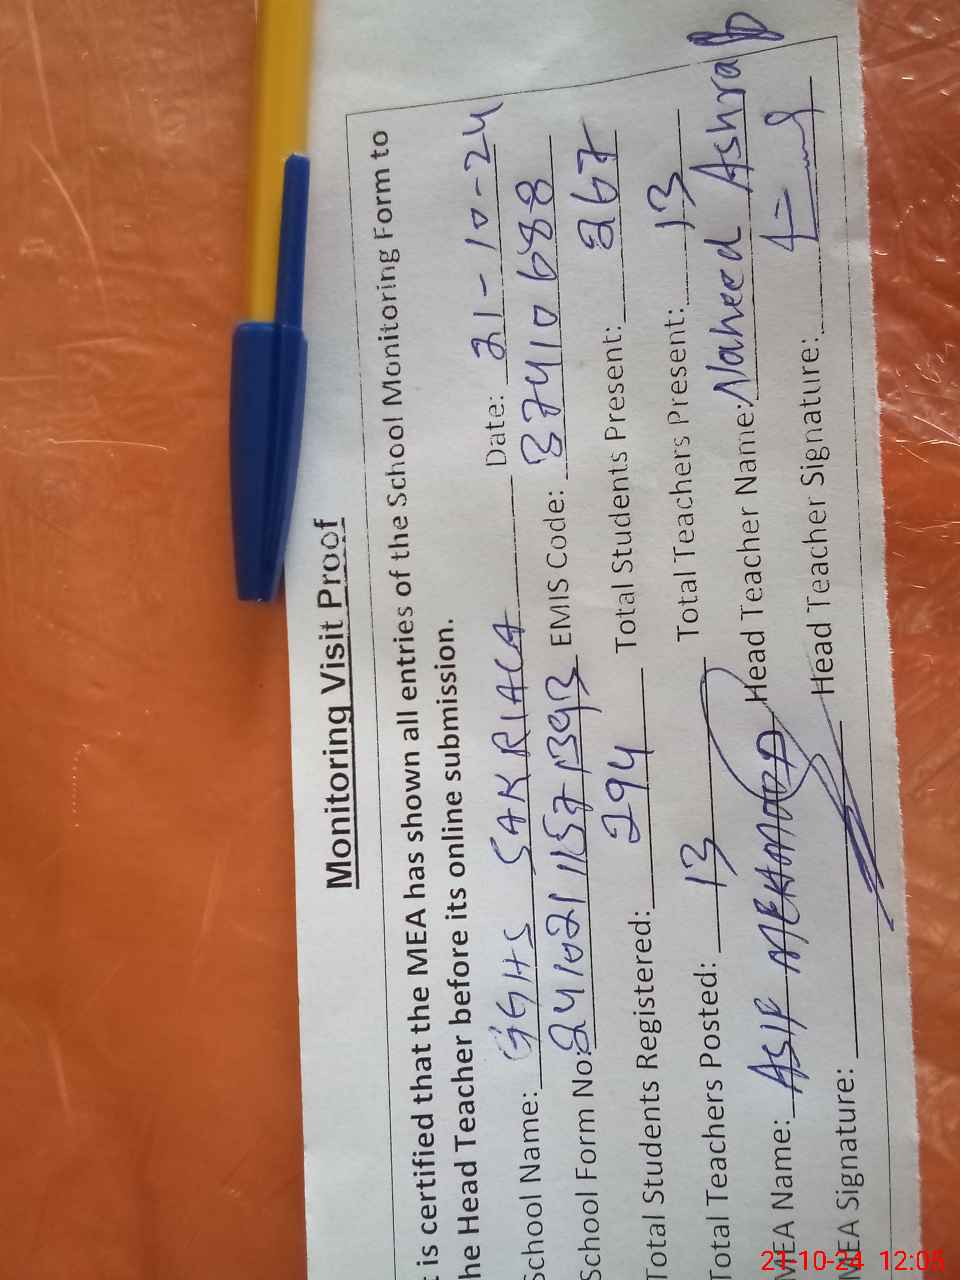 Monitoring Visit Proof
t is certified that the MEA has shown all entries of the School Monitoring Form to
he Head Teacher before its online submission.
School Name: GGHS SAKRIALA Date: 21-10-24
School Form No: 241021115713913 EMIS Code: 37410688
Total Students Registered: 294 Total Students Present: 267
Total Teachers Posted: 13 Total Teachers Present: 13
MEA Name: ASIF MEHMOOD Head Teacher Name: Naheed Ashraf
MEA Signature: Head Teacher Signature:
21-10-24 12:05